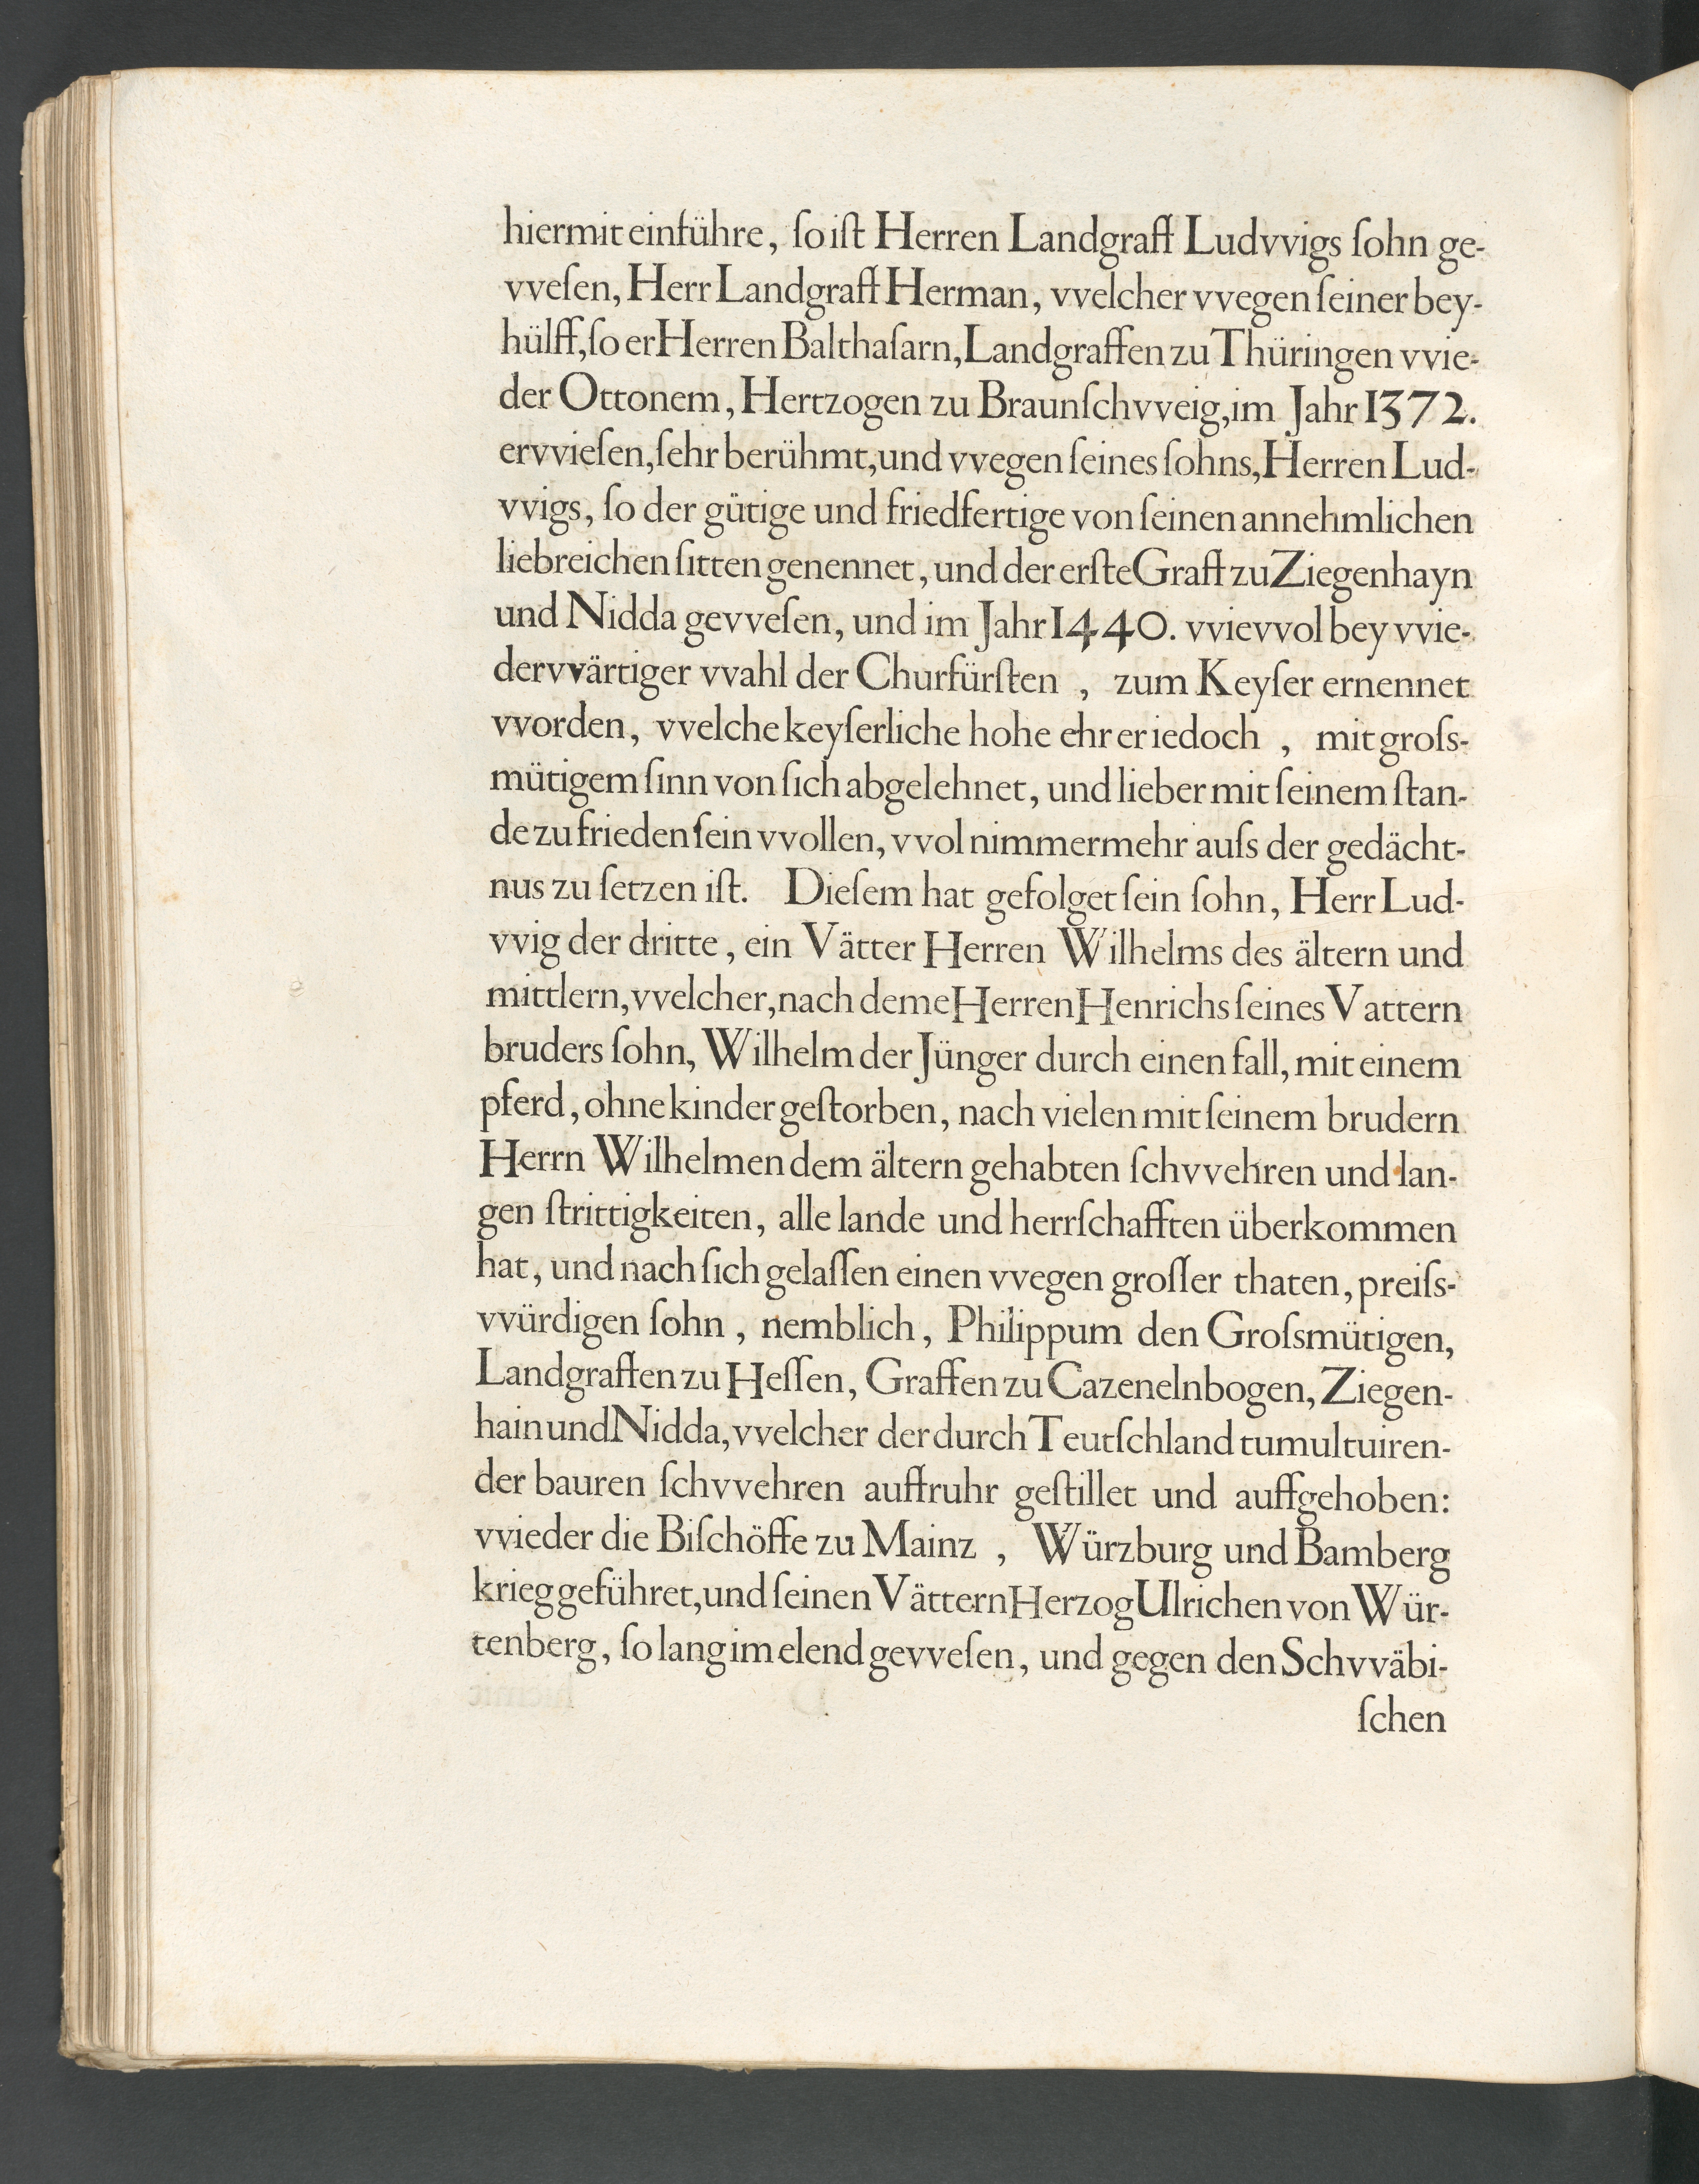 hiermit einführe, ſo iſt Herren Landgraff Ludvvigs ſohn ge-
vveſen, Herr Landgraff Herman, vvelcher vvegen ſeiner bey-
hülff, ſo er Herren Balthaſarn, Landgraffen zu Thüringen vvie-
der Ottonem, Hertzogen zu Braunſchvveig, im Jahr 1372.
ervvieſen, ſehr berühmt, und vvegen ſeines ſohns, Herren Lud-
vvigs, ſo der gütige und friedfertige von ſeinen annehmlichen
liebreichen ſitten genennet, und der erſte Graff zu Ziegenhayn
und Nidda gevveſen, und im Jahr 1440. vvievvol bey vvie-
dervvärtiger vvahl der Churfürſten , zum Keyſer ernennet
vvorden, vvelche keyſerliche hohe ehr er iedoch , mit groſs-
mütigem ſinn von ſich abgelehnet, und lieber mit ſeinem ſtan-
de zu frieden ſein vvollen, vvol nimmermehr auſs der gedächt-
nus zu ſetzen iſt. Dieſem hat gefolget ſein ſohn, Herr Lud-
vvig der dritte, ein Vätter Herren Wilhelms des ältern und
mittlern, vvelcher, nach deme Herren Henrichs ſeines Vattern
bruders ſohn, Wilhelm der Jünger durch einen fall, mit einem
pferd, ohne kinder geſtorben, nach vielen mit ſeinem brudern
Herrn Wilhelmen dem ältern gehabten ſchvvehren und lan-
gen ſtrittigkeiten, alle lande und herrſchafften überkommen
hat, und nach ſich gelaſſen einen vvegen groſſer thaten, preiſs-
vvürdigen ſohn , nemblich, Philippum den Groſsmütigen,
Landgraffen zu Heſſen, Graffen zu Cazenelnbogen, Ziegen-
hain und Nidda, vvelcher der durch Teutſchland tumultuiren-
der bauren ſchvvehren auffruhr geſtillet und auffgehoben:
vvieder die Biſchöffe zu Mainz , Würzburg und Bamberg
krieg geführet, und ſeinen Vättern Herzog Ulrichen von Wür-
tenberg, ſo lang im elend gevveſen, und gegen den Schvväbi-
ſchen